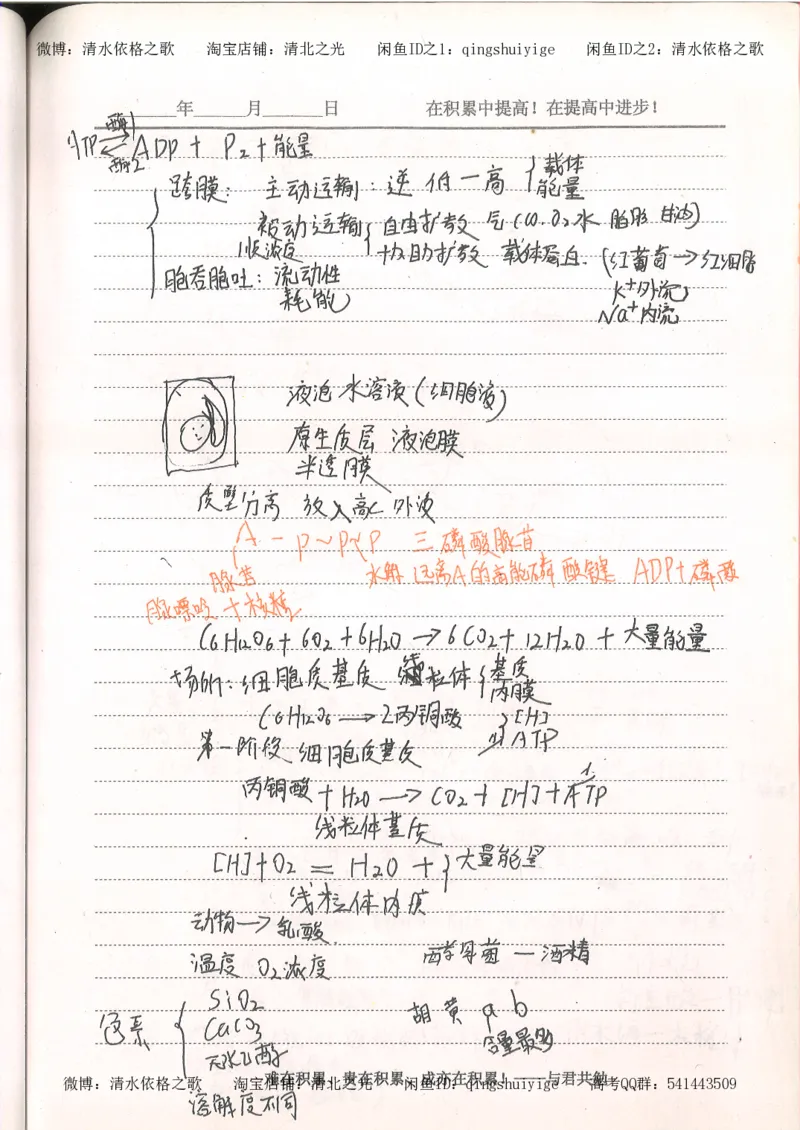 微博：清水依格之歌 淘宝店铺：清北之光 闲鱼ID之1：qingshuiyige 闲鱼ID之2：清水依格之歌
年 月 日 在积累中提高！在提高中进步！
ATP ⇌ ADP + P2 + 能量
酶1
酶2
跨膜： 主动运输：逆 低—高 { 载体
能量
被动运输 { 自由扩散 气(CO2 O2 水 脂肪 甘油)
顺浓度
协助扩散 载体蛋白 (红葡萄→红细胞
K+外流)
Na+内流
胞吞胞吐：流动性
耗能
液泡 水溶液(细胞液)
原生质层 液泡膜
半透膜
质壁分离 放入高 外液
A - P ~ P ~ P 三磷酸腺苷
腺苷 水解 远离A的高能磷酸键 ADP+磷酸
腺嘌呤 + 核糖
C6H12O6 + 6O2 + 6H2O → 6CO2 + 12H2O + 大量能量
场所：细胞质基质 线粒体 { 基质
内膜
C6H12O6 → 2丙酮酸 } [H]
ATP
第一阶段 细胞质基质
丙酮酸 + H2O → CO2 + [H] + ATP
线粒体基质
[H] + O2 = H2O + } 大量能量
线粒体内质
动物 → 乳酸
酵母菌 — 酒精
温度 O2浓度
色素 { SiO2
CaCO3
无水乙醇
胡 黄 a b
含量最多
难在积累！贵在积累、成亦在积累！——与君共勉
微博：清水依格之歌 淘宝店铺：清北之光 闲鱼ID：qingshuiyige 高考QQ群：541443509
溶解度不同